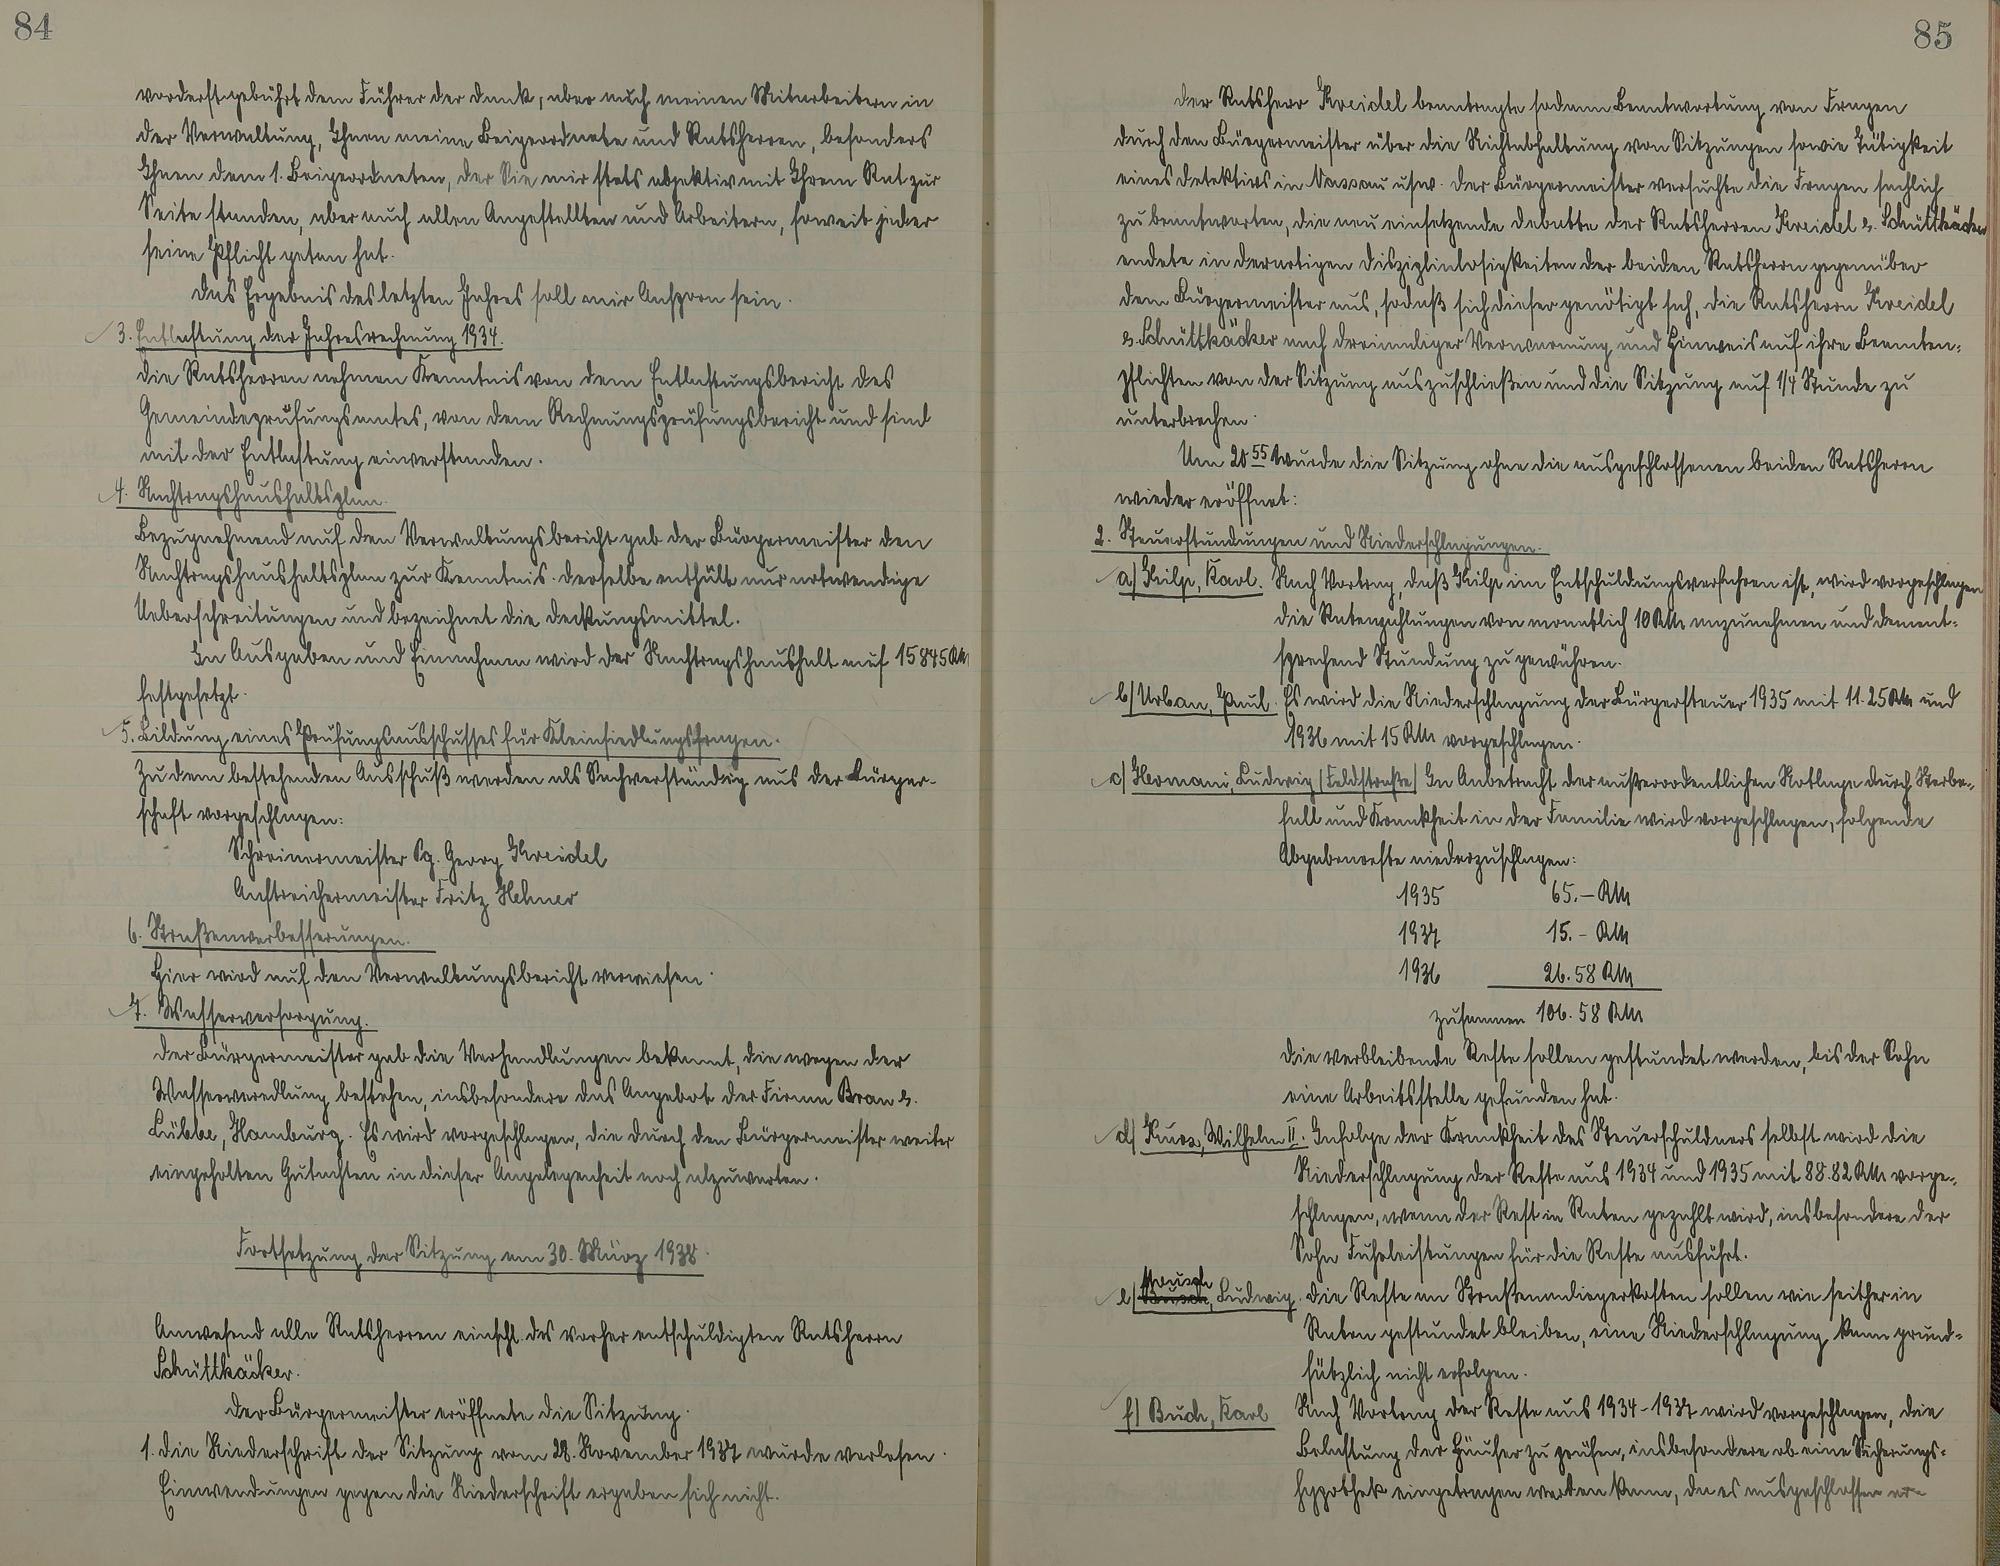 84
vorderst gebührt dem Führer der Dank, aber auch meinen Mitarbeitern in
der Verwaltung, Ihnen meine Beigeordnete und Ratsherren, besonders
Ihnen dem 1. Beigeordneten, der Sie mir stets objektiv mit Ihrem Rat zur
Seite standen, aber auch allen Angestellten und Arbeitern, soweit jeder
seine Pflicht getan hat.
Das Ergebnis des letzten Jahres soll mir Ansporn sein.
3. Entlastung der Jahresrechnung 1934.
Die Ratsherren nehmen Kenntnis von dem Entlastungsbericht des
Gemeindeprüfungsamtes, von dem Rechnungsprüfungsbericht und sind
mit der Entlastung einverstanden.
4. Nachtragshaushaltsplan.
Bezugnehmend auf den Verwaltungsbericht gab der Bürgermeister den
Nachtragshaushaltsplan zur Kenntnis. Derselbe enthält nur notwendige
Ueberschreitungen und bezeichnet die Deckungsmittel.
In Ausgaben und Einnahmen wird der Nachtragshaushalt auf 15845 RM
festgesetzt.
5. Bildung eines Prüfungsausschusses für Kleinsiedlungsfragen.
Zu dem bestehenden Ausschuß werden als Sachverständig aus der Bürger-
schaft vorgeschlagen:
Schreinermeister Pg. Georg Kreidel
Anstreichermeister Fritz Hehner
6. Straßenverbesserungen.
Hier wird auf den Verwaltungsbericht verwiesen.
7. Wasserversorgung.
Der Bürgermeister gab die Verhandlungen bekannt, die wegen der
Wasserveredlung bestehen, insbesondere das Angebot der Firma Bran &
Lübbe, Hamburg. Es wird vorgeschlagen, die durch den Bürgermeister weiter
eingeholten Gutachten in dieser Angelegenheit noch abzuwarten.
Fortsetzung der Sitzung am 30. März 1938.
Anwesend alle Ratsherren einschl. des vorher entschuldigten Ratsherrn
Schüttkäcker.
Der Bürgermeister eröffnete die Sitzung.
1. Die Niederschrift der Sitzung vom 28. November 1937 wurde verlesen.
Einwendungen gegen die Niederschrift ergaben sich nicht.
85
Der Ratsherr Kreidel beantragte sodann Beantwortung von Fragen
durch den Bürgermeister über die Nichtabhaltung von Sitzungen sowie Tätigkeit
eines Detektivs in Nassau usw. Der Bürgermeister versuchte die Fragen sachlich
zu beantworten, die neu einsetzende Debatte der Ratsherren Kreidel & Schüttkäcker
endete in derartigen Disziplinlosigkeiten der beiden Ratsherrn gegenüber
dem Bürgermeister aus, sodaß sich dieser genötigt sah, die Ratsherrn Kreidel
& Schüttkäcker nach dreimaliger Verwarnung und Hinweis auf ihre Beamten=
pflichten von der Sitzung auszuschließen und die Sitzung auf 1/4 Stunde zu
unterbrechen.
Um 20 55 wurde die Sitzung ohne die ausgeschlossenen beiden Ratsherrn
wieder eröffnet:
2. Steuerstundungen und Niederschlagungen.
a) Hilp, Karl. Nach Vortrag, daß Hilp im Entschuldungsverfahren ist, wird vorgeschlagen
die Ratenzahlungen von monatlich 10 RM anzunehmen und dement=
sprechend Stundung zu gewähren.
b) Urban, Paul. Es wird die Niederschlagung der Bürgersteuer 1935 mit 11.25 RM und
1936 mit 15 RM vorgeschlagen.
c) Hermani, Ludwig (Feldstraße) In Anbetracht der außerordentlichen Notlage durch Sterbe=
fall und Krankheit in der Familie wird vorgeschlagen, folgende
Abgabenreste niederzuschlagen:
1935 65.- RM
1937 15.- RM
1936 26.58 RM
zusammen 106.58 RM
Die verbleibende Reste sollen gestundet werden, bis der Sohn
eine Arbeitsstelle gefunden hat.
d) Kurz, Wilhelm II. Infolge der Krankheit des Steuerschuldners selbst wird die
Niederschlagung der Reste aus 1934 und 1935 mit 88.82 RM vorge=
schlagen, wenn der Rest in Raten gezahlt wird, insbesondere der
Sohn Fuhrleistungen für die Reste ausführt.
e) , Ludwig. Die Reste an Straßenanliegerkosten sollen wie seither in
Raten gestundet bleiben, eine Niederschlagung kann grund=
sätzlich nicht erfolgen.
f) Buch, Karl Nach Vortrag der Reste aus 1934-1937 wird vorgeschlagen, die
Belastung der Häuser zu prüfen, insbesondere ob eine Sicherungs=
hypothek eingetragen werden kann, da es ausgeschlossen er=